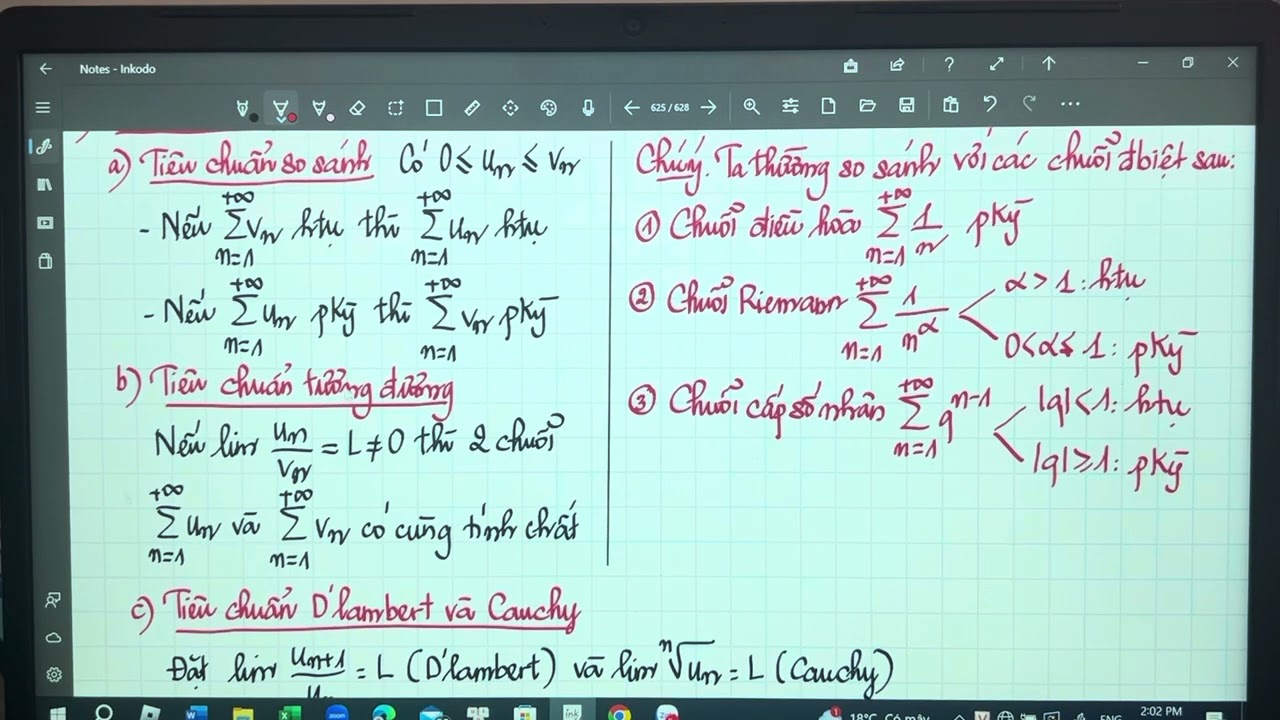 Notes - Inkodo
625 / 628
a) Tiêu chuẩn so sánh Có 0 ≤ uₙ ≤ vₙ
- Nếu ∑_{n=1}^{+∞} vₙ htụ thì ∑_{n=1}^{+∞} uₙ htụ
- Nếu ∑_{n=1}^{+∞} uₙ pkỳ thì ∑_{n=1}^{+∞} vₙ pkỳ
b) Tiêu chuẩn tương đương
Nếu lim uₙ/vₙ = L ≠ 0 thì 2 chuỗi
∑_{n=1}^{+∞} uₙ và ∑_{n=1}^{+∞} vₙ có cùng tính chất
Chú ý. Ta thường so sánh với các chuỗi đbiệt sau:
① Chuỗi điều hòa ∑_{n=1}^{+∞} 1/n pkỳ
② Chuỗi Riemann ∑_{n=1}^{+∞} 1/n^α
α > 1: htụ
0 < α ≤ 1: pkỳ
③ Chuỗi cấp số nhân ∑_{n=1}^{+∞} q^{n-1}
|q| < 1: htụ
|q| ≥ 1: pkỳ
c) Tiêu chuẩn D'lambert và Cauchy
Đặt lim uₙ₊₁/uₙ = L (D'lambert) và lim ⁿ√uₙ = L (Cauchy)
18°C Có mây
ENG
2:02 PM